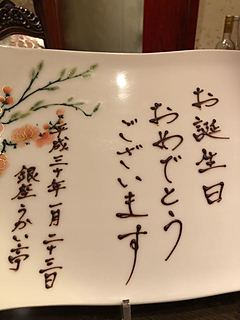 お誕生日
おめでとう
ございます
平成三十年一月二十三日
銀座うかい亭